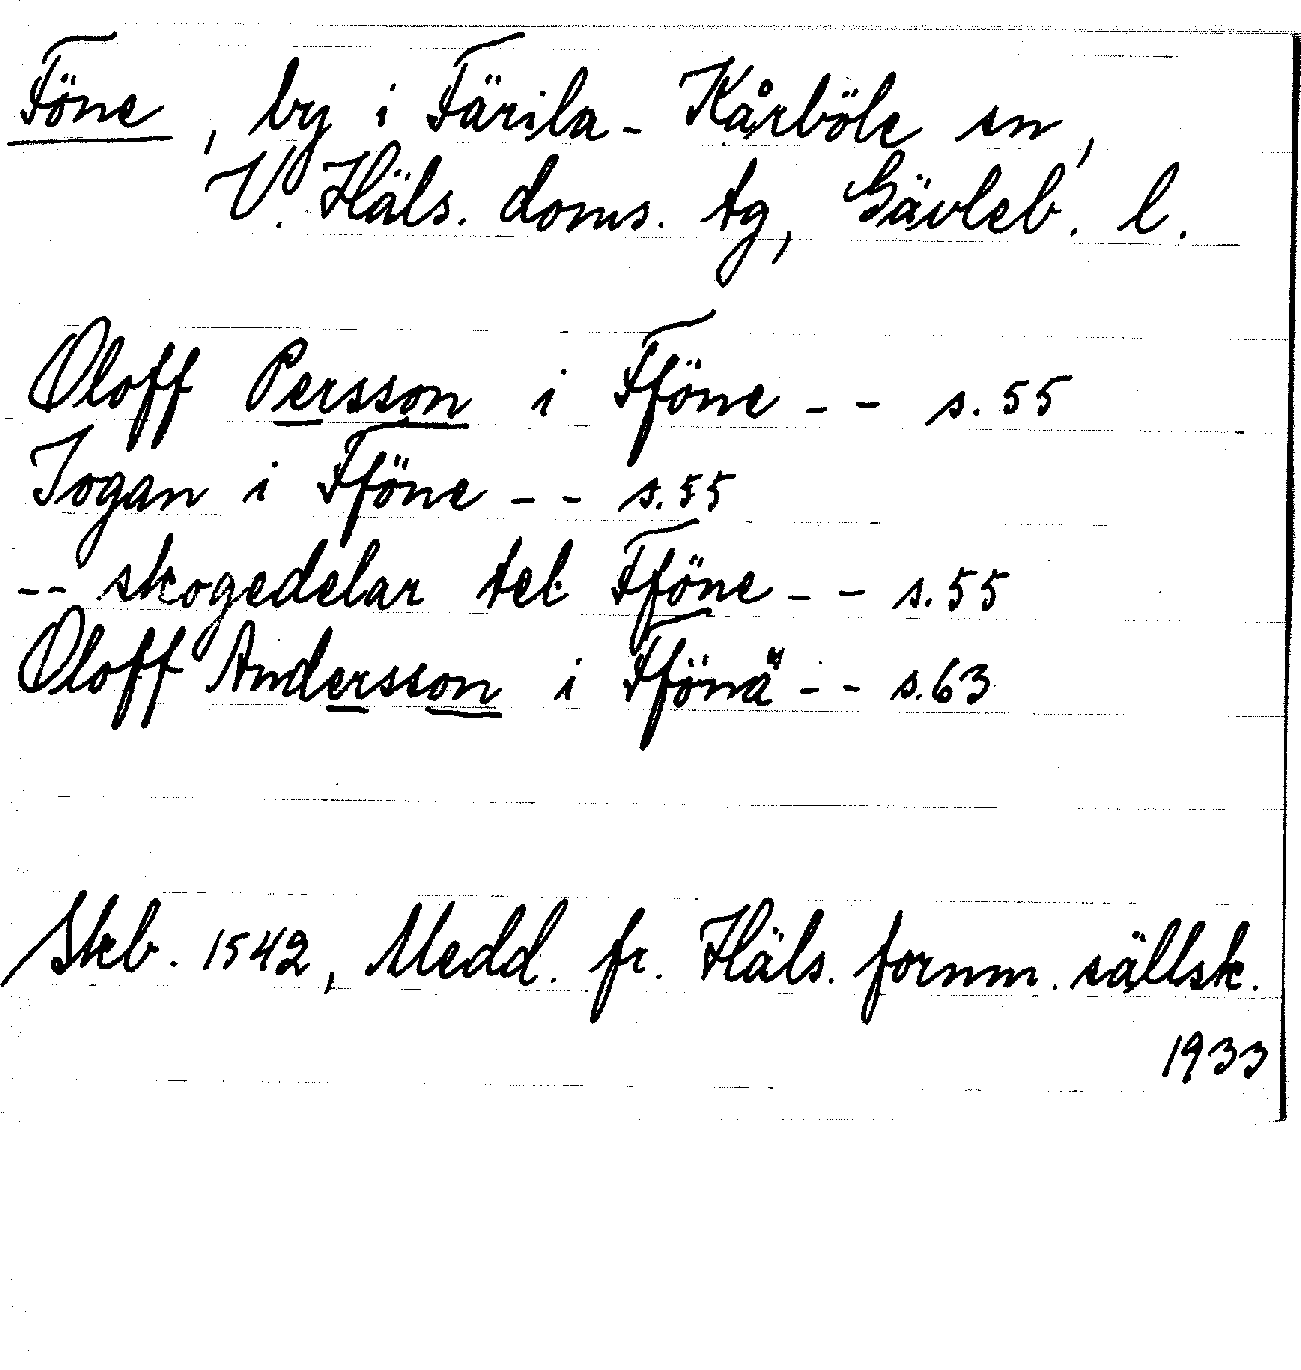 Föne, by i Färila-Kårböle sn,
V. Häls. doms. tg, Gävleb. l.
Oloff Persson i Fföne -- s. 55
Jogan i Fföne -- s. 55
-- skogedelar tel Fföne -- s. 55
Oloff Andersson i Ffönä -- s. 63
Skb. 1542, Medd. fr. Häls. fornm. sällsk.
1933